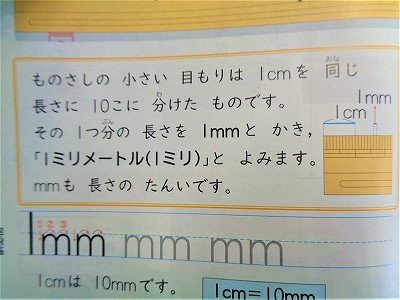 ものさしの 小さい 目もりは 1cmを 同じ
おな
長さに 10こに 分けた ものです。
わ
その 1つ分の 長さを 1mmと かき，
ぶん
「1ミリメートル(1ミリ)」と よみます。
mmも 長さの たんいです。
1mm
1cm
1mm mm mm
1cmは 10mmです。
1cm=10mm